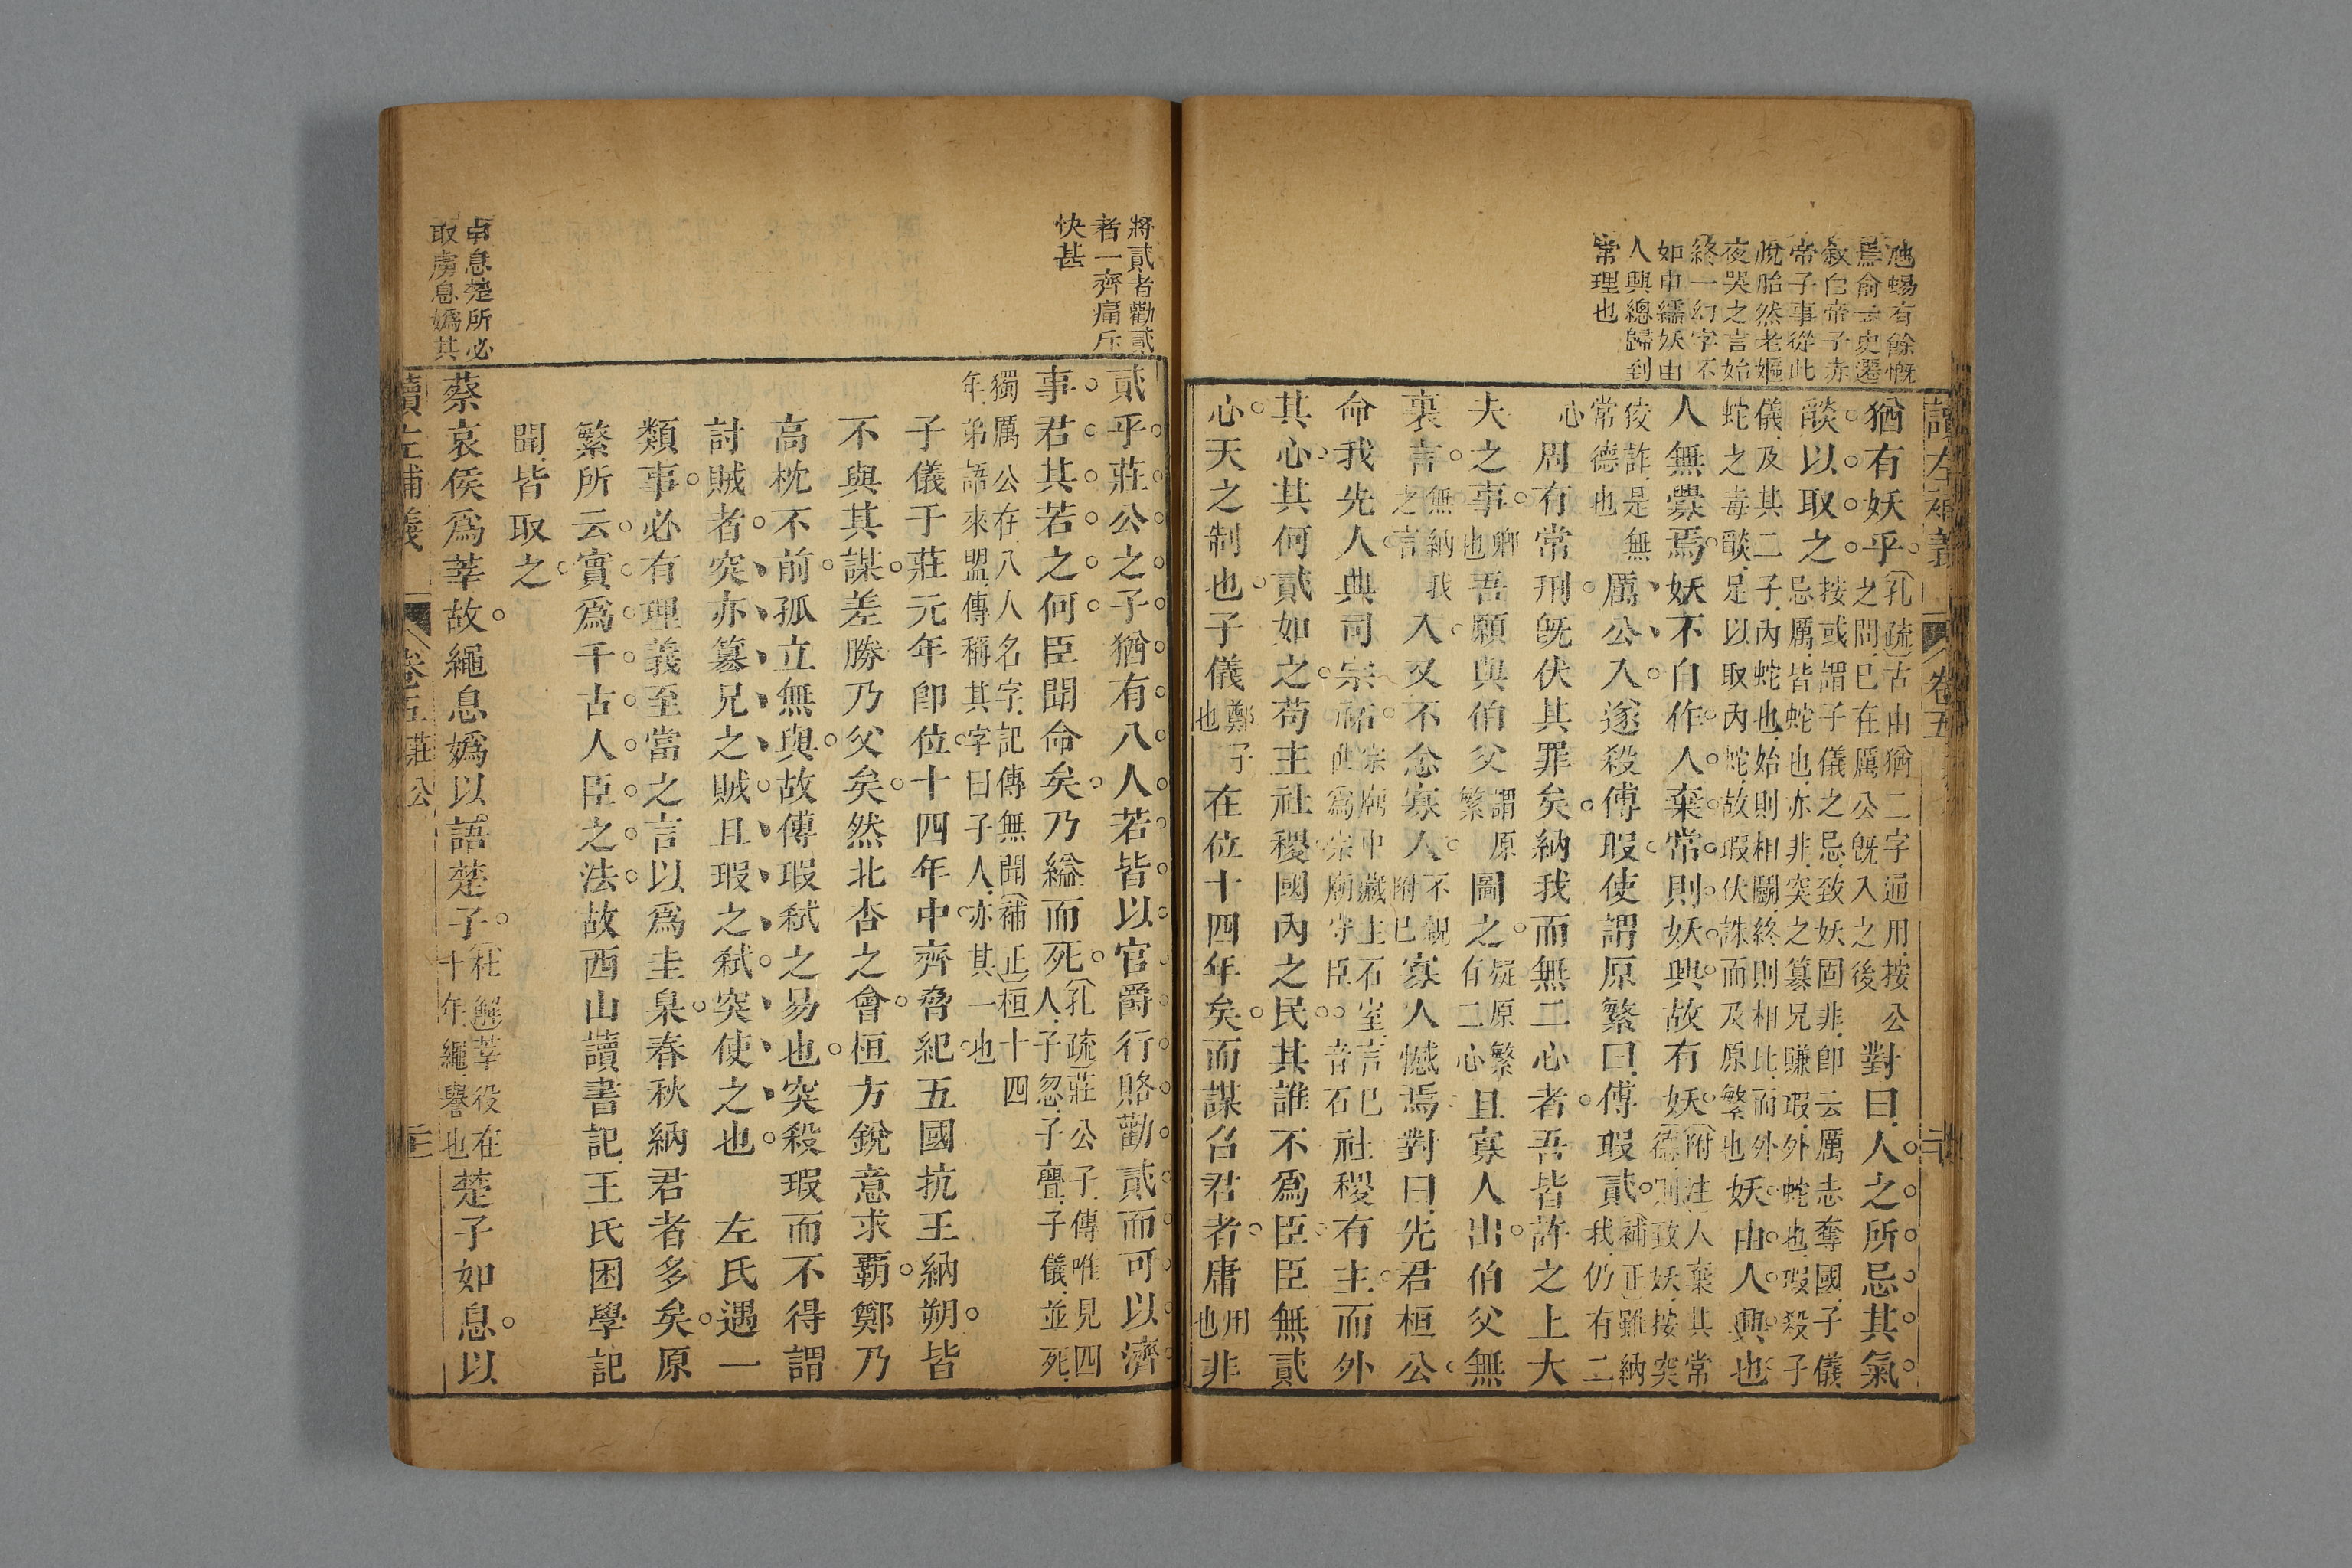 虺蜴有餘慨
焉俞云史遷
叙白帝子赤
帝子事從此
脫胎然老嫗
夜哭之言始
終一幻字不
如申繻妖由
人興總歸到
常理也
讀左補義 卷五 二十
猶有妖乎(孔疏)古由猶二字通用按公之問已在厲公既入之後對曰人之所忌其氣
燄以取之按或謂子儀之忌致妖固非即云厲志奪國子儀忌厲皆蛇也亦非突之簒兄賺瑕外蛇也瑕殺子
儀及其二子內蛇也始則相鬭終則相比而外蛇之毒燄足以取內蛇故瑕伏誅而及原繁也妖由人興也
人無釁焉妖不自作人棄常則妖興故有妖(附注)人棄其常德則致妖按突
狡詐是無常德也厲公入遂殺傅瑕使謂原繁曰傅瑕貳(補正)雖納我仍有二
心周有常刑既伏其罪矣納我而無二心者吾皆許之上大
夫之事卿也吾願與伯父謂原繁圖之疑原繁有二心且寡人出伯父無
裏言無納我之言入又不念寡人不親附己寡人憾焉對曰先君桓公
命我先人典司宗祏宗廟中藏主石室言己世爲宗廟守臣○○音石社稷有主而外
其心其何貳如之苟主社稷國內之民其誰不爲臣臣無貳
心天之制也子儀鄭子也在位十四年矣而謀召君者庸用也非
將貳者勸貳
者一齊痛斥
快甚
貳乎莊公之子猶有八人若皆以官爵行賂勸貳而可以濟
事君其若之何臣聞命矣乃縊而死(孔疏)莊公子傳唯見四人子忽子亹子儀並死
獨厲公在八人名字記傳無聞(補正)桓十四年弟語來盟傳稱其字曰子人亦其一也
子儀于莊元年即位十四年中齊脅紀五國抗王納朔皆
不與其謀差勝乃父矣然北杏之會桓方銳意求覇鄭乃
高枕不前孤立無與故傅瑕弒之易也突殺瑕而不得謂
討賊者突亦簒兄之賊且瑕之弒突使之也 左氏遇一
類事必有理義至當之言以爲圭臬春秋納君者多矣原
繁所云實爲千古人臣之法故西山讀書記王氏困學記
聞皆取之
申息楚所必
取虜息嬀其
蔡哀侯爲莘故繩息嬀以語楚子(杜解)莘役在十年繩譽也楚子如息以
讀左補義 卷五 莊公 二十